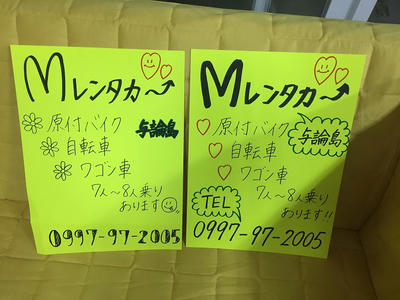 Mレンタカ〜
原付バイク
与論島
自転車
ワゴン車
7人〜8人乗り
あります!!
0997-97-2005
Mレンタカ〜
原付バイク
与論島
自転車
ワゴン車
7人〜8人乗り
あります!!
TEL
0997-97-2005